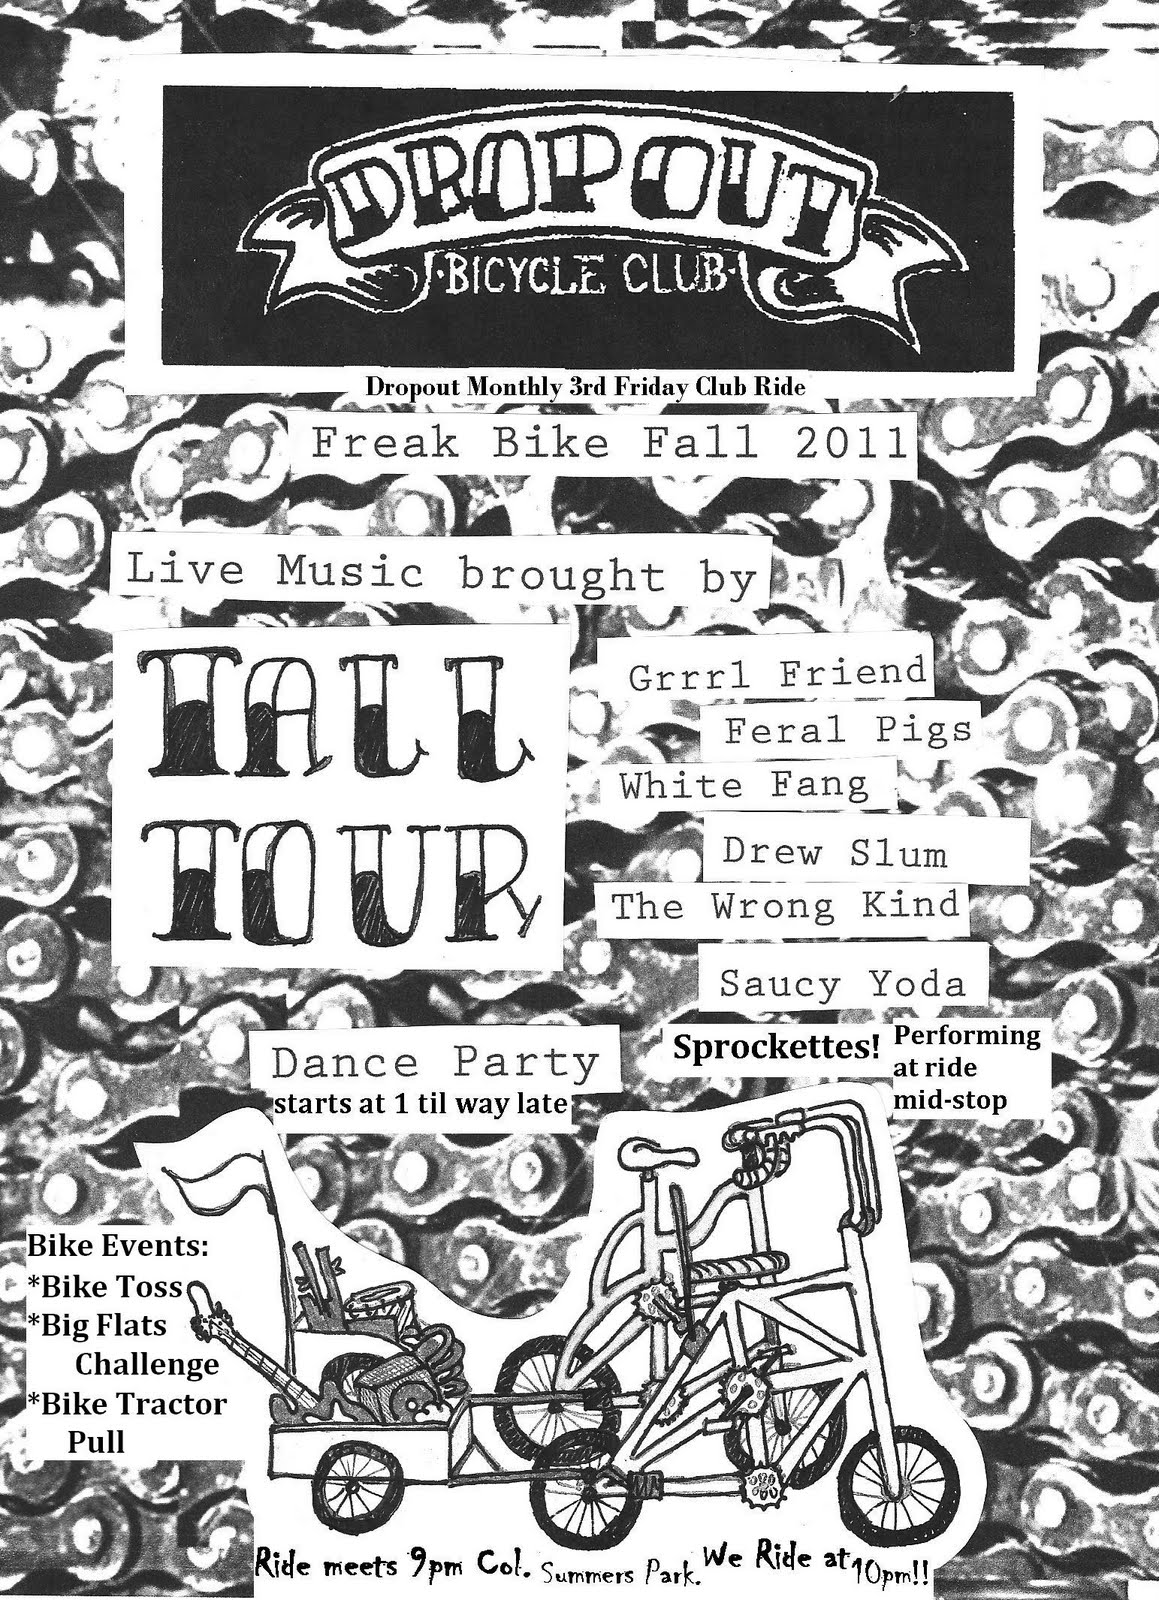 DROPOUT
·BICYCLE CLUB·
Dropout Monthly 3rd Friday Club Ride
Freak Bike Fall 2011
Live Music brought by
TALL
TOUR
Grrrl Friend
Feral Pigs
White Fang
Drew Slum
The Wrong Kind
Saucy Yoda
Sprockettes!
Performing
at ride
mid-stop
Dance Party
starts at 1 til way late
Bike Events:
*Bike Toss
*Big Flats
Challenge
*Bike Tractor
Pull
Ride meets 9pm Col. Summers Park. We Ride at 10pm!!